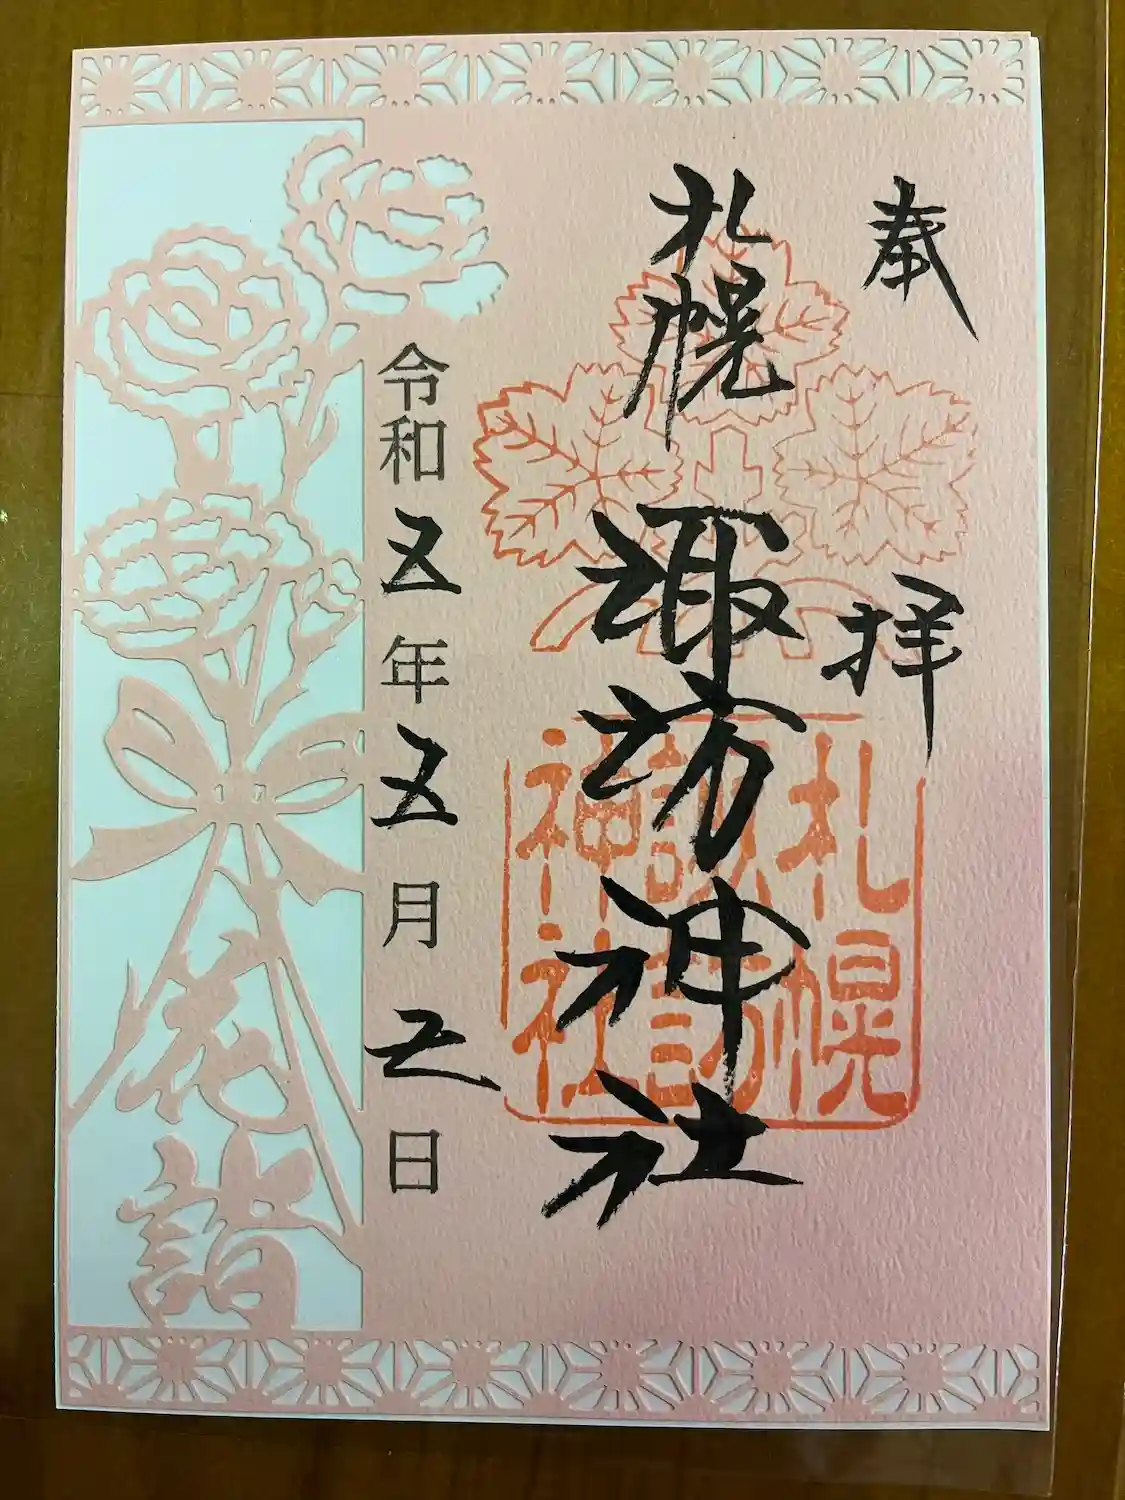 奉拝
札幌諏訪神社
札幌
諏訪
神社
令和五年五月乙日
花詣